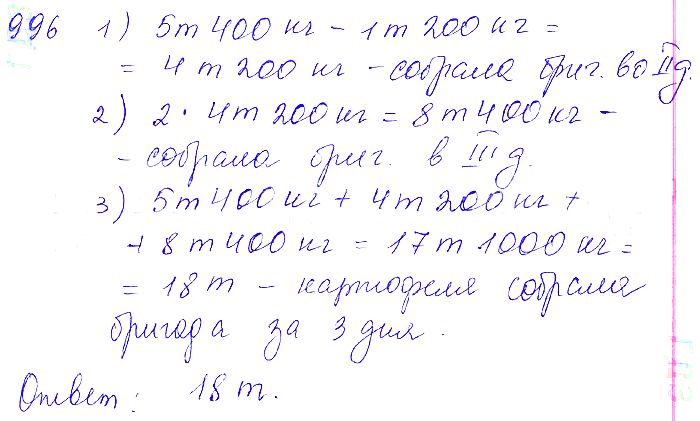 996 1) 5т 400 кг - 1т 200 кг =
= 4 т 200 кг - собрала бриг. во II д.
2) 2 · 4т 200 кг = 8 т 400 кг -
- собрала бриг. в III д.
3) 5т 400 кг + 4 т 200 кг +
+ 8 т 400 кг = 17 т 1000 кг =
= 18 т - картофеля собрала
бригада за 3 дня.
Ответ: 18 т.